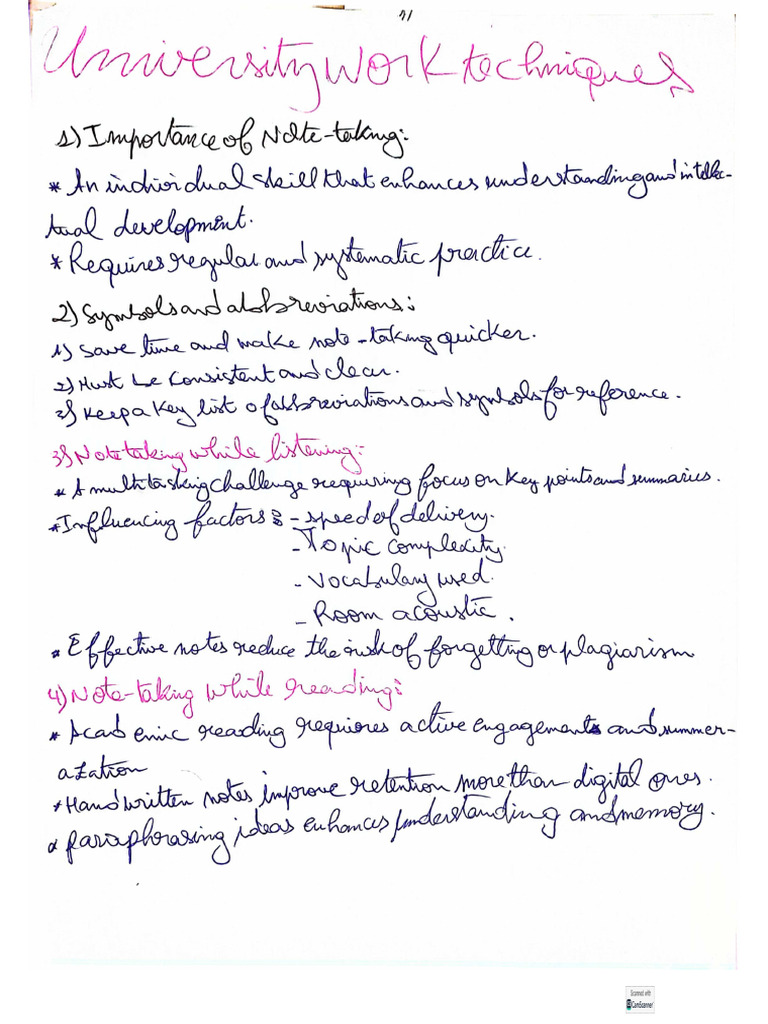 11
University work techniques
1) Importance of Note-taking:
* An individual skill that enhances understanding and intellec-
tual development.
* Requires regular and systematic practice.
2) Symbols and abbreviations:
1) Save time and make note-taking quicker.
2) Must be consistent and clear.
3) Keep a key list of abbreviations and symbols for reference.
3) Note taking while listening:
* A multitasking challenge requiring focus on key points and summaries.
* Influencing factors: - speed of delivery.
- Topic complexity.
- Vocabulary used.
- Room acoustic.
* Effective notes reduce the risk of forgetting or plagiarism
4) Note-taking while reading:
* Academic reading requiores active engagements and summer-
azation
* Handwritten notes improve retention more than digital ones.
* paraphrasing ideas enhances understanding and memory.
Scanned with
CamScanner